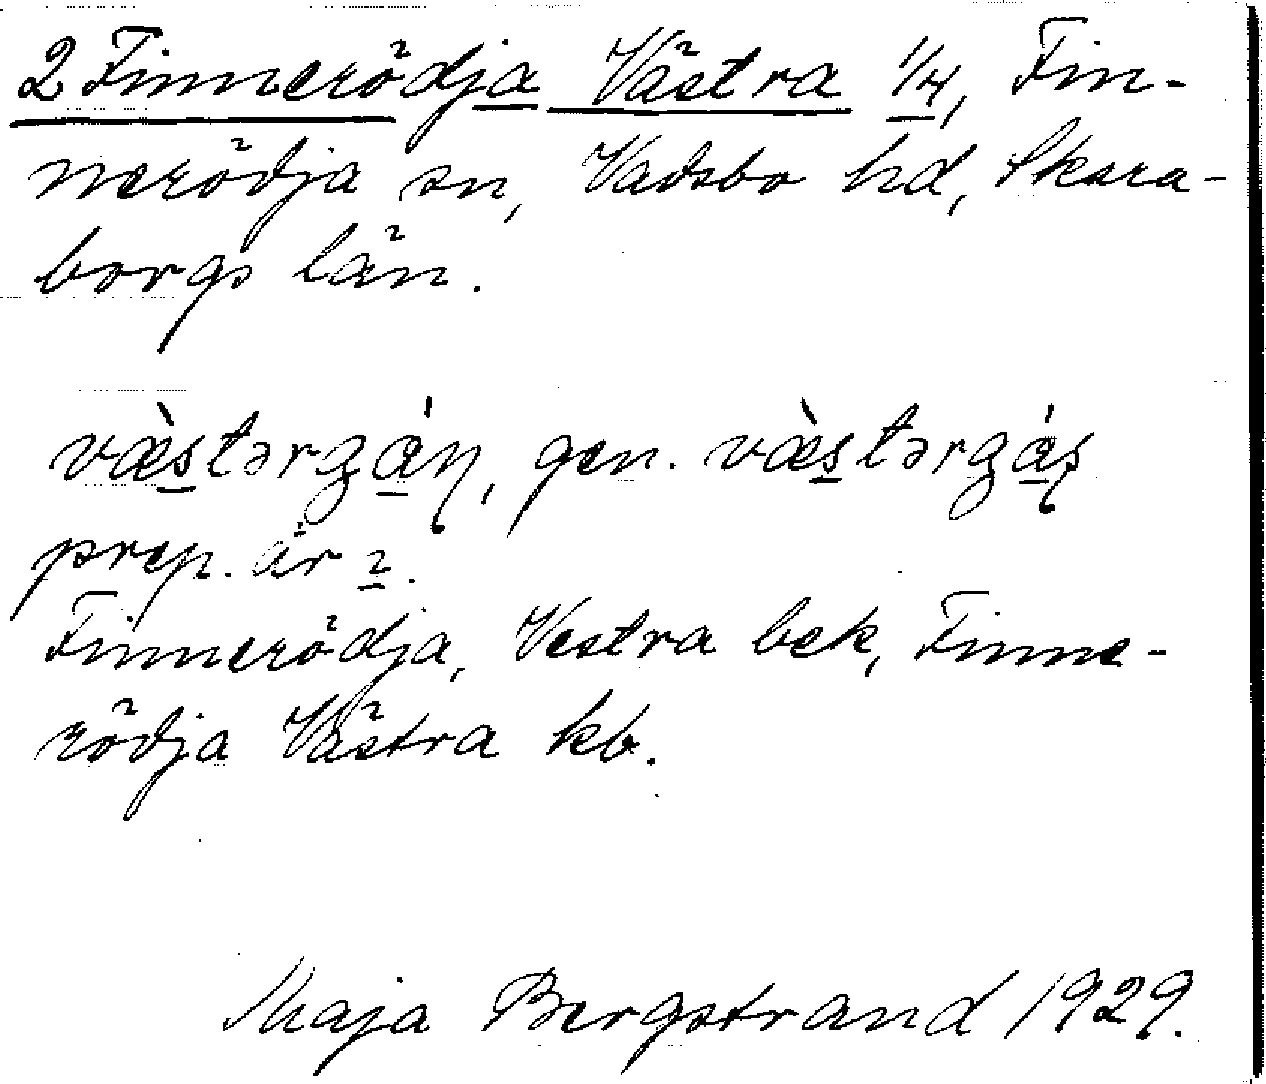 2 Finnerödja Västra 1/4, Fin-
nerödja sn, Vadsbo hd, Skara-
borgs län.
væ̀stərgáɳ, gen. væ̀stərgáʂ
prep. är ı.
Finnerödja, Vestra bek, Finne-
rödja Västra kb.
Maja Bergstrand 1929.